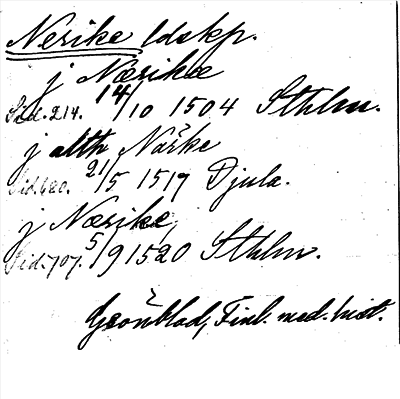 Nerike ldskp.
j Nærikæ
Sid. 214. 14/10 1504 Sthlm.
j alth Närke
Sid. 620. 21/5 1517 Djula.
j Nærike
Sid. 707. 5/9 1520 Sthlm.
Grönblad, Finl. med. hist.